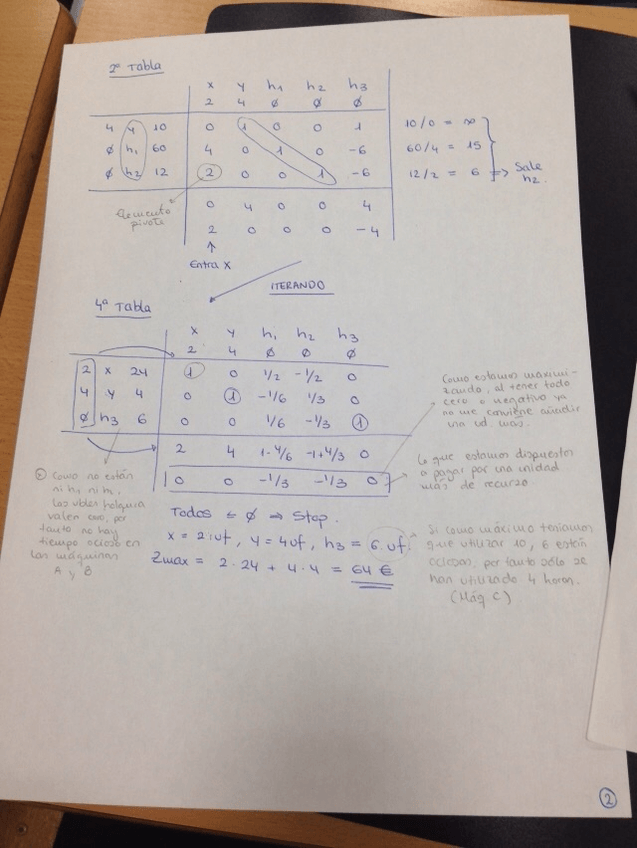 2ª Tabla
x y h1 h2 h3
2 4 ø ø ø
4 y 10 0 1 0 0 1 10/0 = ∞
ø h1 60 4 0 1 0 -6 60/4 = 15
ø h2 12 2 0 0 1 -6 12/2 = 6 => Sale h2.
0 4 0 0 4
2 0 0 0 -4
Elemento pivote
↑
Entra x
ITERANDO
4ª Tabla
x y h1 h2 h3
2 4 ø ø ø
2 x 24 1 0 1/2 -1/2 0
4 y 4 0 1 -1/6 1/3 0
ø h3 6 0 0 1/6 -1/3 1
2 4 1-4/6 -1+4/3 0
0 0 -1/3 -1/3 0
Como estamos maximi-
zando, al tener todo
cero o negativo ya
no me conviene añadir
una ud. más.
Lo que estamos dispuestos
a pagar por una unidad
más de recurso.
Como no están
ni h1 ni h2
las vbles holgura
valen cero, por
tanto no hay
tiempo ocioso en
las máquinas
A y B
Todos ≤ ø => Stop.
x = 2 uf, y = 4 uf, h3 = 6 uf.
Zmax = 2·24 + 4·4 = 64 €
Si como máximo teníamos
que utilizar 10, 6 están
ociosas, por tanto sólo se
han utilizado 4 horas.
(Máq C)
2